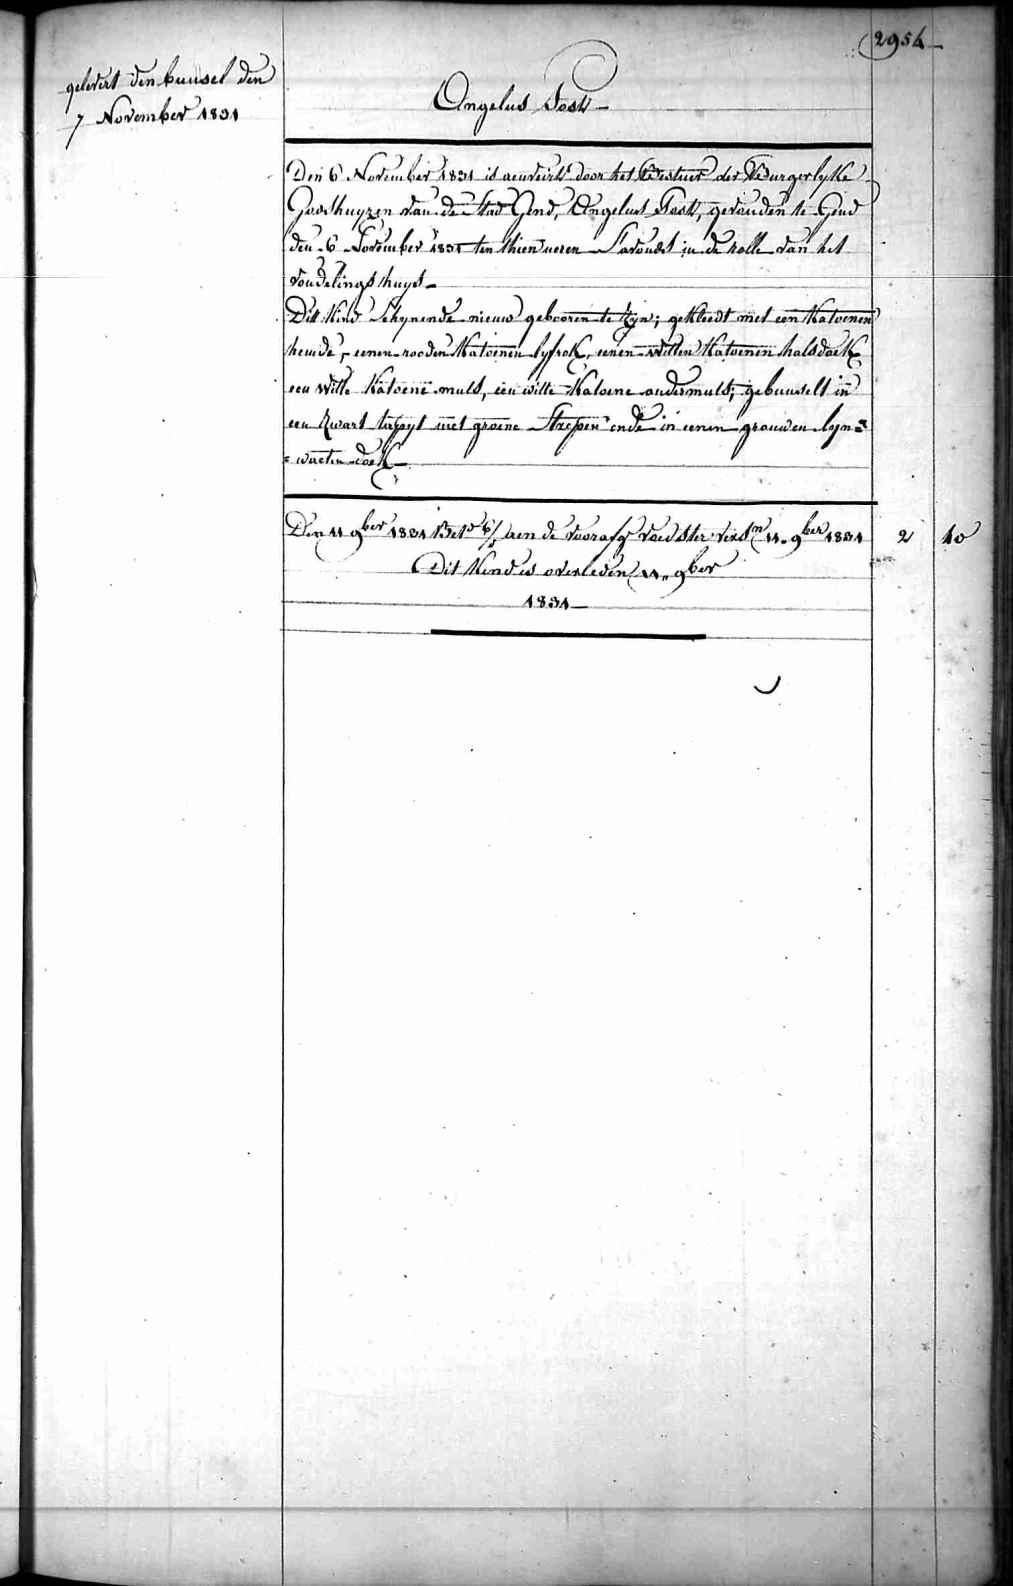 2954
gelevert den bunsel den
7 November 1831
Angelus Task
Den 6 November 1831 is aenveirt door het Bestuer der Burgerlyke
Godshuyzen van de stad Gend, Angelus Task, gevonden te Gend
den 6 November 1831 ten thien ueren S'avonds in de rolle van het
vondelings huys
Dit Kind Schynende nieuw gebooren te zyn; gekleedt met een Katoenen
hemde, eenen rooden Katoenen lyfrok, eenen witten Katoenen halsdoek
een witte Katoene muts, een witte Katoene ondermuts, gebunselt in
een Zwart tappyt met groene Streepen ende in eenen grauwen lyn=
=waeten doek
Den 11 9ber 1831 Bet.d aen de voorafg voedster 11. 9ber 1831 2 40
Dit Kind is overleden 11,, 9ber
1831